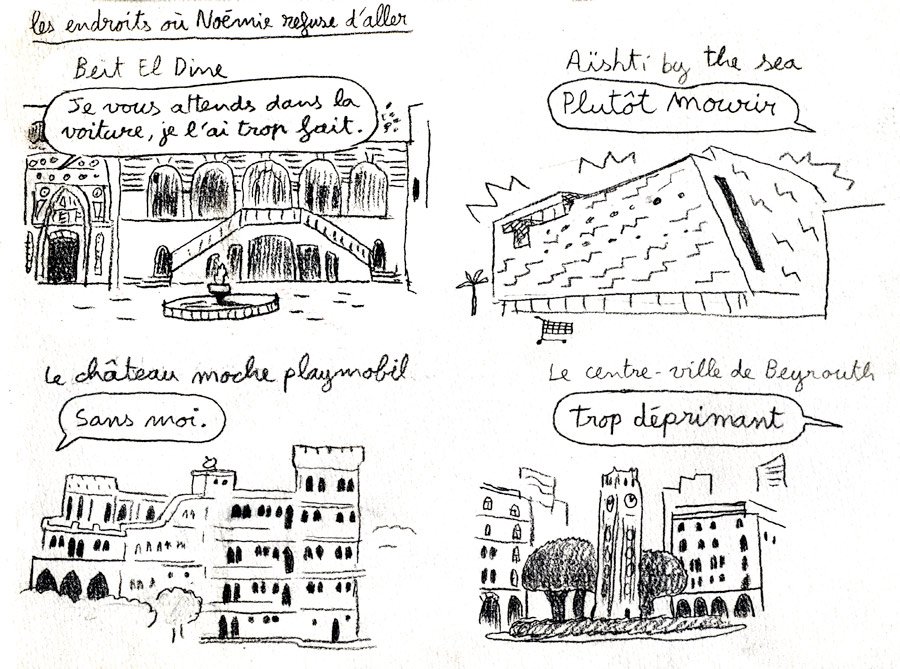 les endroits où Noémie refuse d'aller
Beit El Dine
Je vous attends dans la
voiture, je l'ai trop fait.
Aïshti by the sea
Plutôt mourir
Le château moche playmobil
Sans moi.
Le centre-ville de Beyrouth
trop déprimant